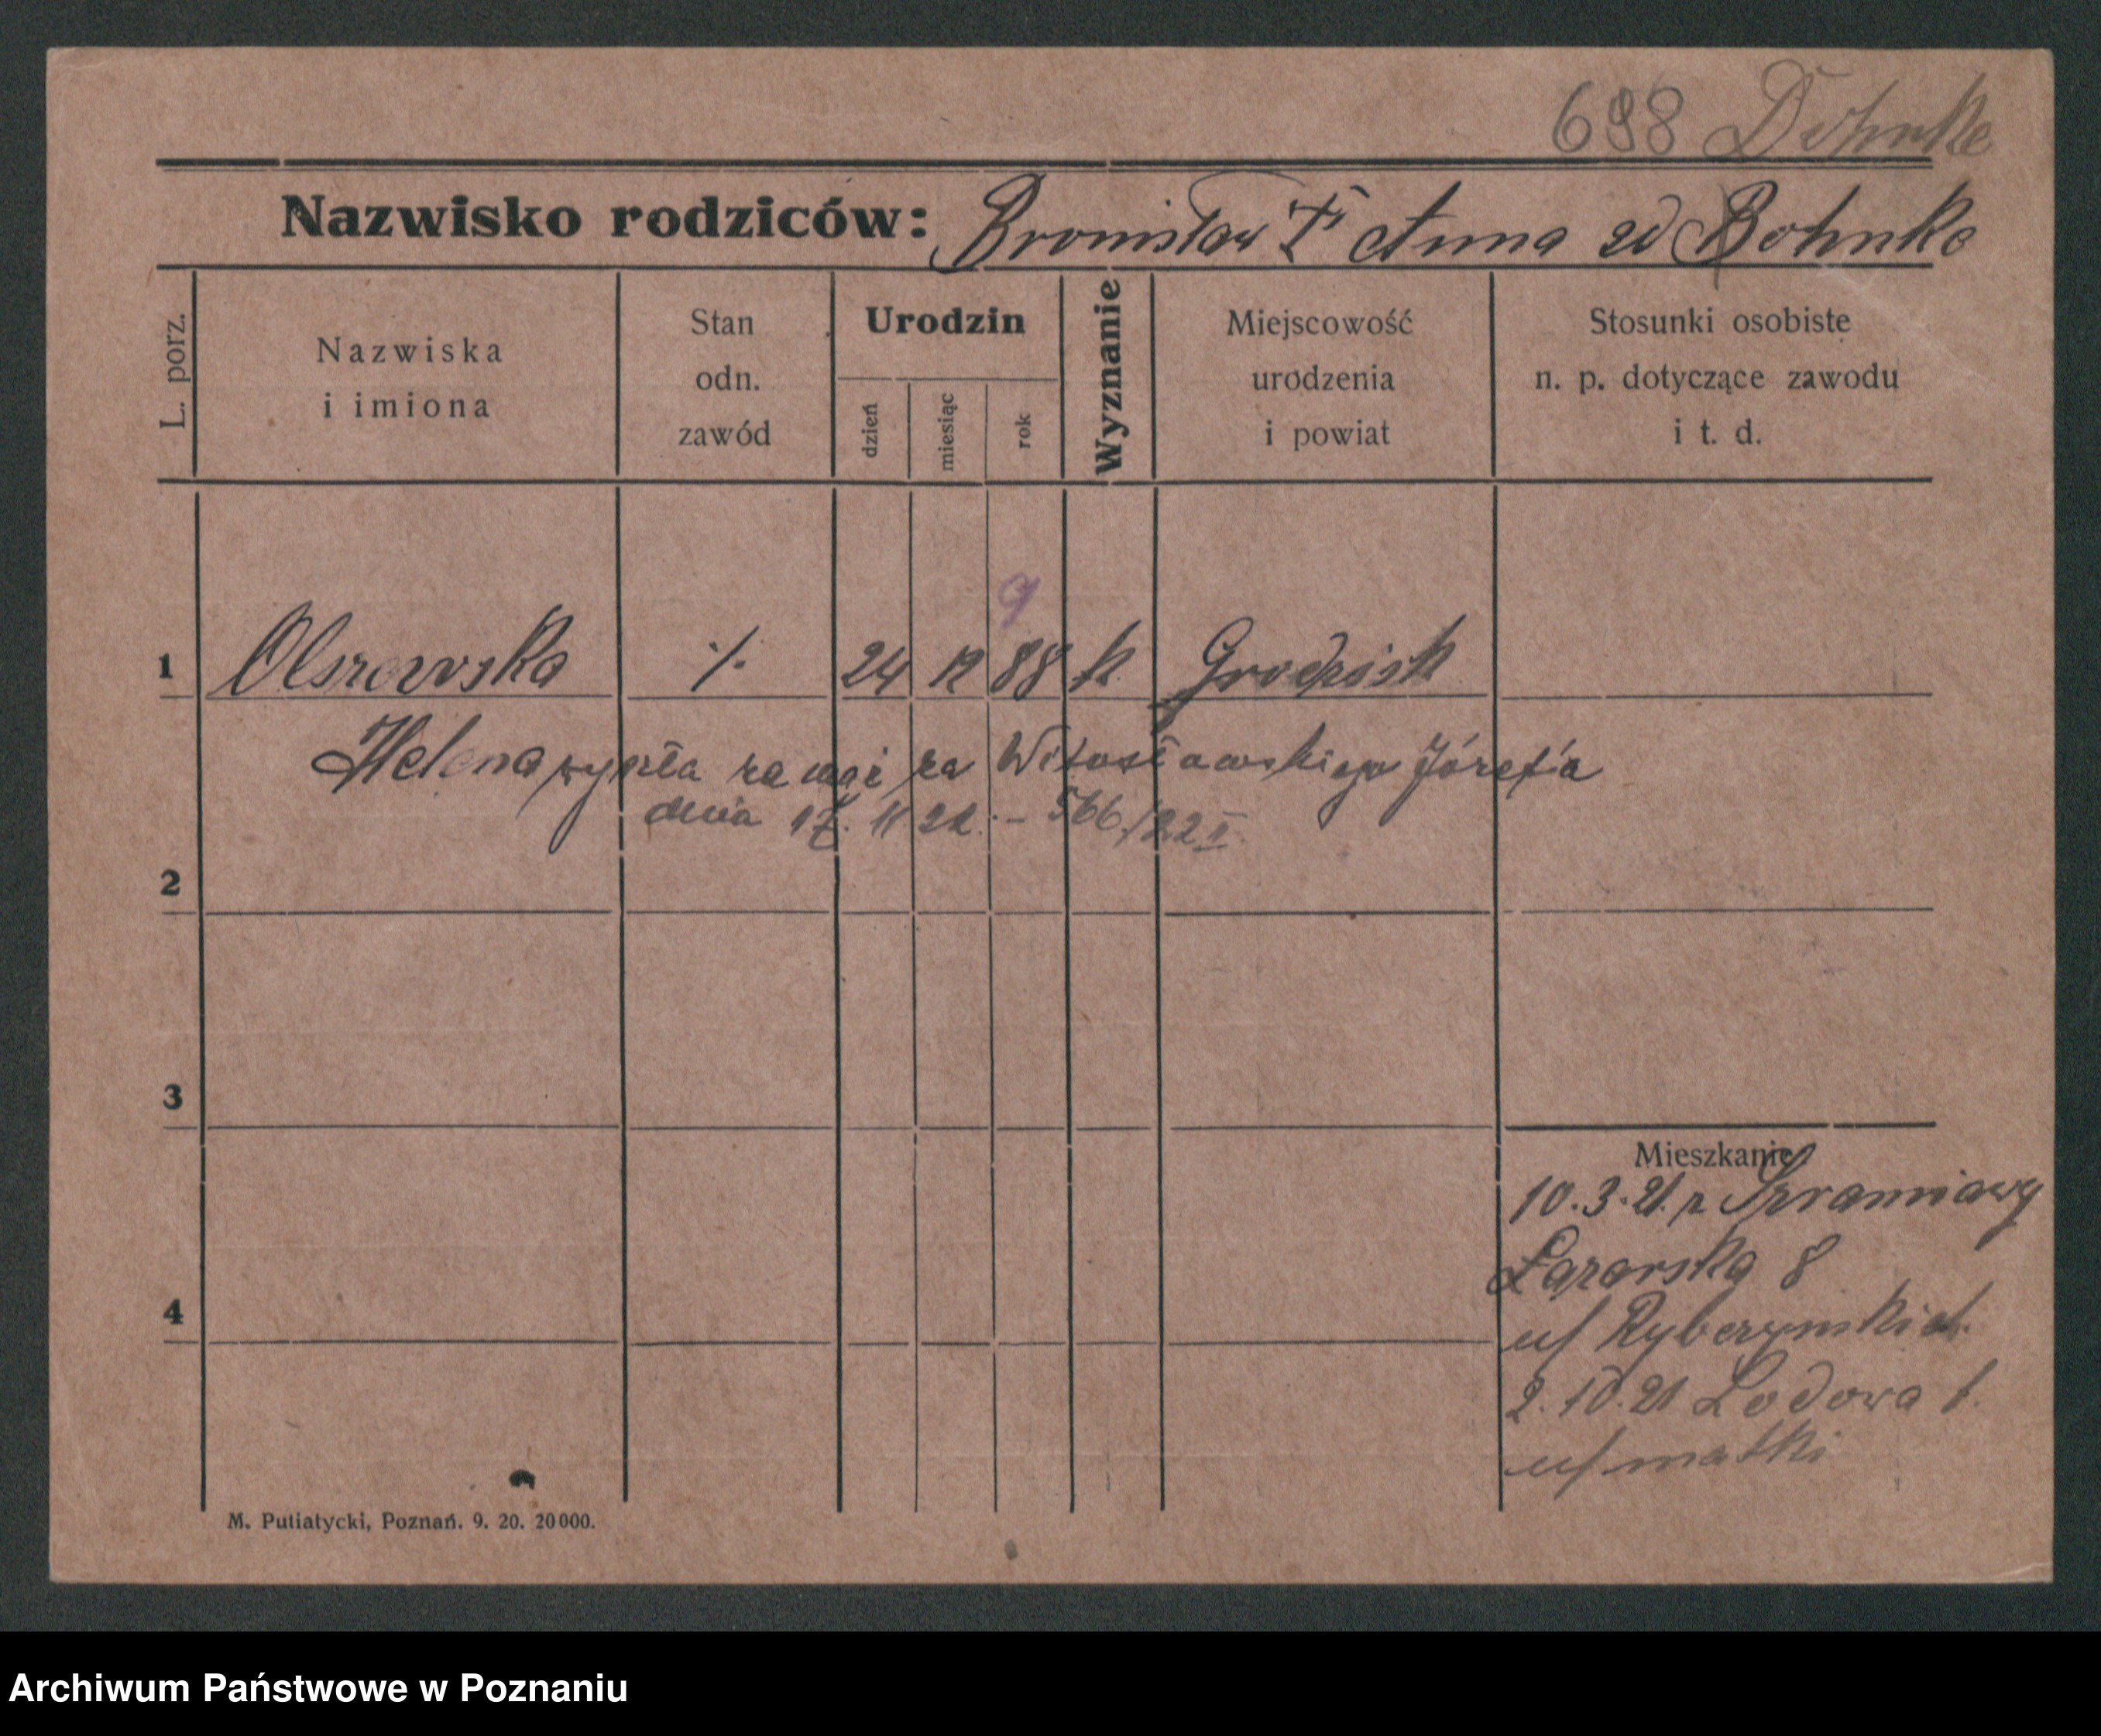 698 Dohnke
Nazwisko rodziców: Bronisław † Anna zd Bohnke
L. porz.
Nazwiska
i imiona
Stan
odn.
zawód
Urodzin
dzień
miesiąc
rok
Wyznanie
Miejscowość
urodzenia
i powiat
Stosunki osobiste
n. p. dotyczące zawodu
i t. d.
9
1 Olszewska ·/. 24 12 88 k Grodzisk
Helena wyszła za mąż za Witosławskiego Józefa
dnia 17. 11 22. – 566/22 II.
2
3
Mieszkanie
10.3.21. z Szramiawy
Łazarska 8
4
u/
2.10.21 Lodowa 1.
u/ matki
M. Putiatycki, Poznań. 9. 20. 20000.
Archiwum Państwowe w Poznaniu